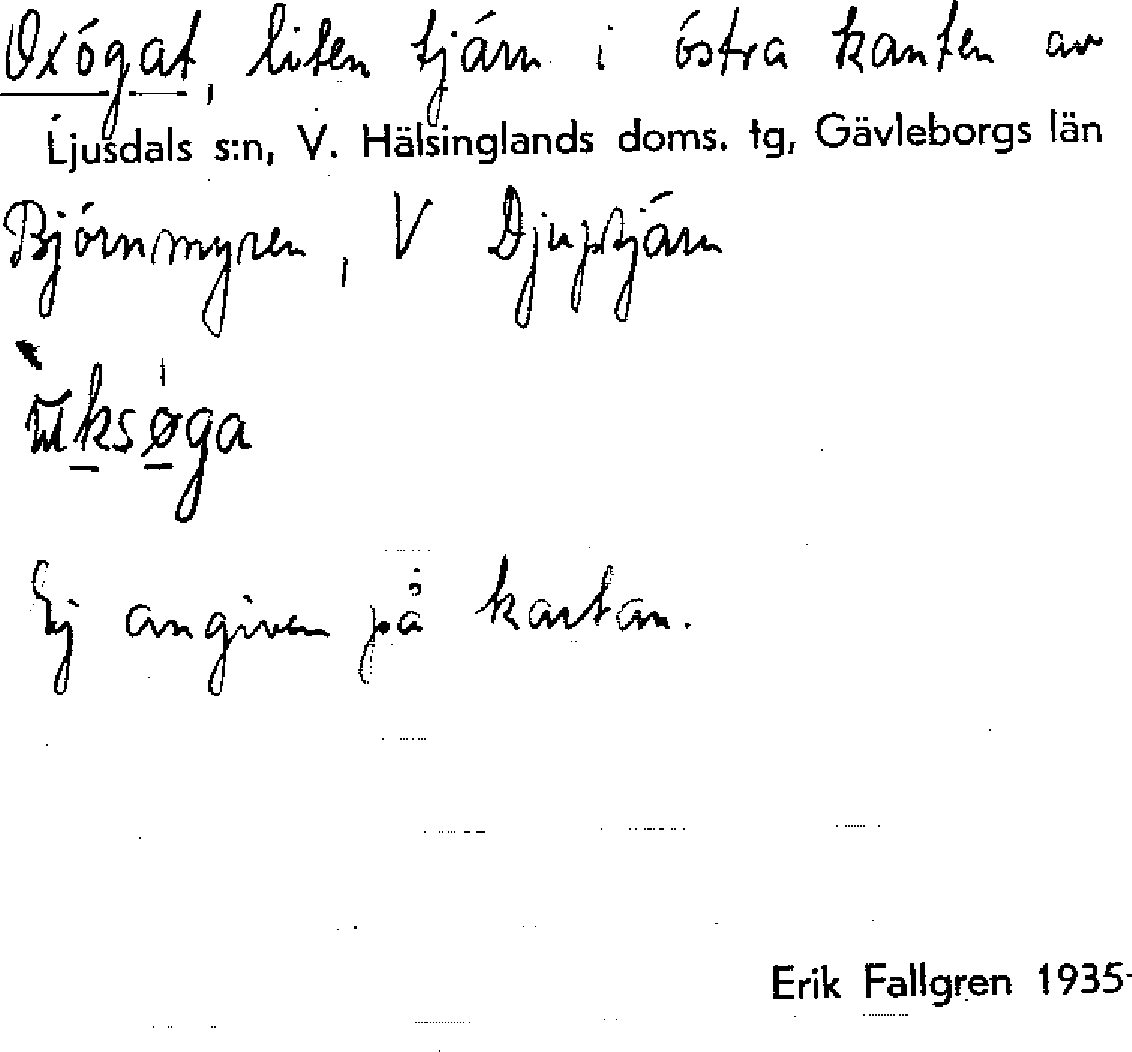 Oxögat, liten tjärn i östra kanten av
Ljusdals s:n, V. Hälsinglands doms. tg, Gävleborgs län
Björnmyren, V Djuptjärn
Ej angiven på kartan.
Erik Fallgren 1935